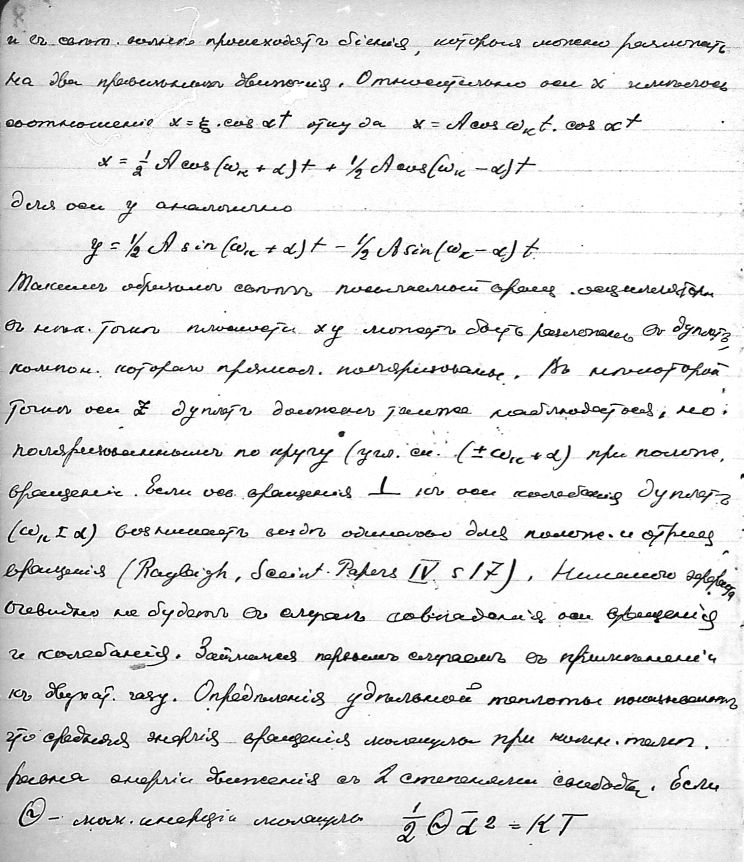 и въ свѣт. волнѣ происходятъ біенія, которыя можно разложить
на два правильныхъ движенія. Относительно оси x имѣлось
соотношеніе x = ξ. cos αt откуда x = A cos ωₖ t. cos αt
x = ½ A cos (ωₖ + α) t + ½ A cos (ωₖ – α) t
для оси y аналогично
y = ½ A sin (ωₖ + α) t – ½ A sin (ωₖ – α) t
Такимъ образомъ свѣтъ посылаемый вращ. осцилляторомъ
въ нѣк. точкѣ плоскости xy можетъ быть разложенъ въ дуплетъ,
компон. котораго прямол. поляризованы. Въ нѣкоторой
точкѣ оси Z дуплетъ долженъ также наблюдаться, но
поляризованнымъ по кругу (угл. ск. (± ωₖ + α) при полож.
вращеніи. Если ось вращенія ⊥ къ оси колебанія дуплетъ
(ωₖ ± α) возникаетъ вездѣ одинаково для полож. и отриц.
вращенія (Rayleigh, Scient. Papers IV s 17). Никакого
очевидно не будетъ въ случаѣ совпаденія оси вращенія
и колебанія. Займемся первымъ случаемъ въ примѣненіи
къ двухат. газу. Опредѣленія удѣльной теплоты показываютъ
что средняя энергія вращенія молекулы при комн. темп.
равна энергіи движенія съ 2 степенями свободы. Если
Θ – мом. инерціи молекулы ½ Θ ᾱ² = KT